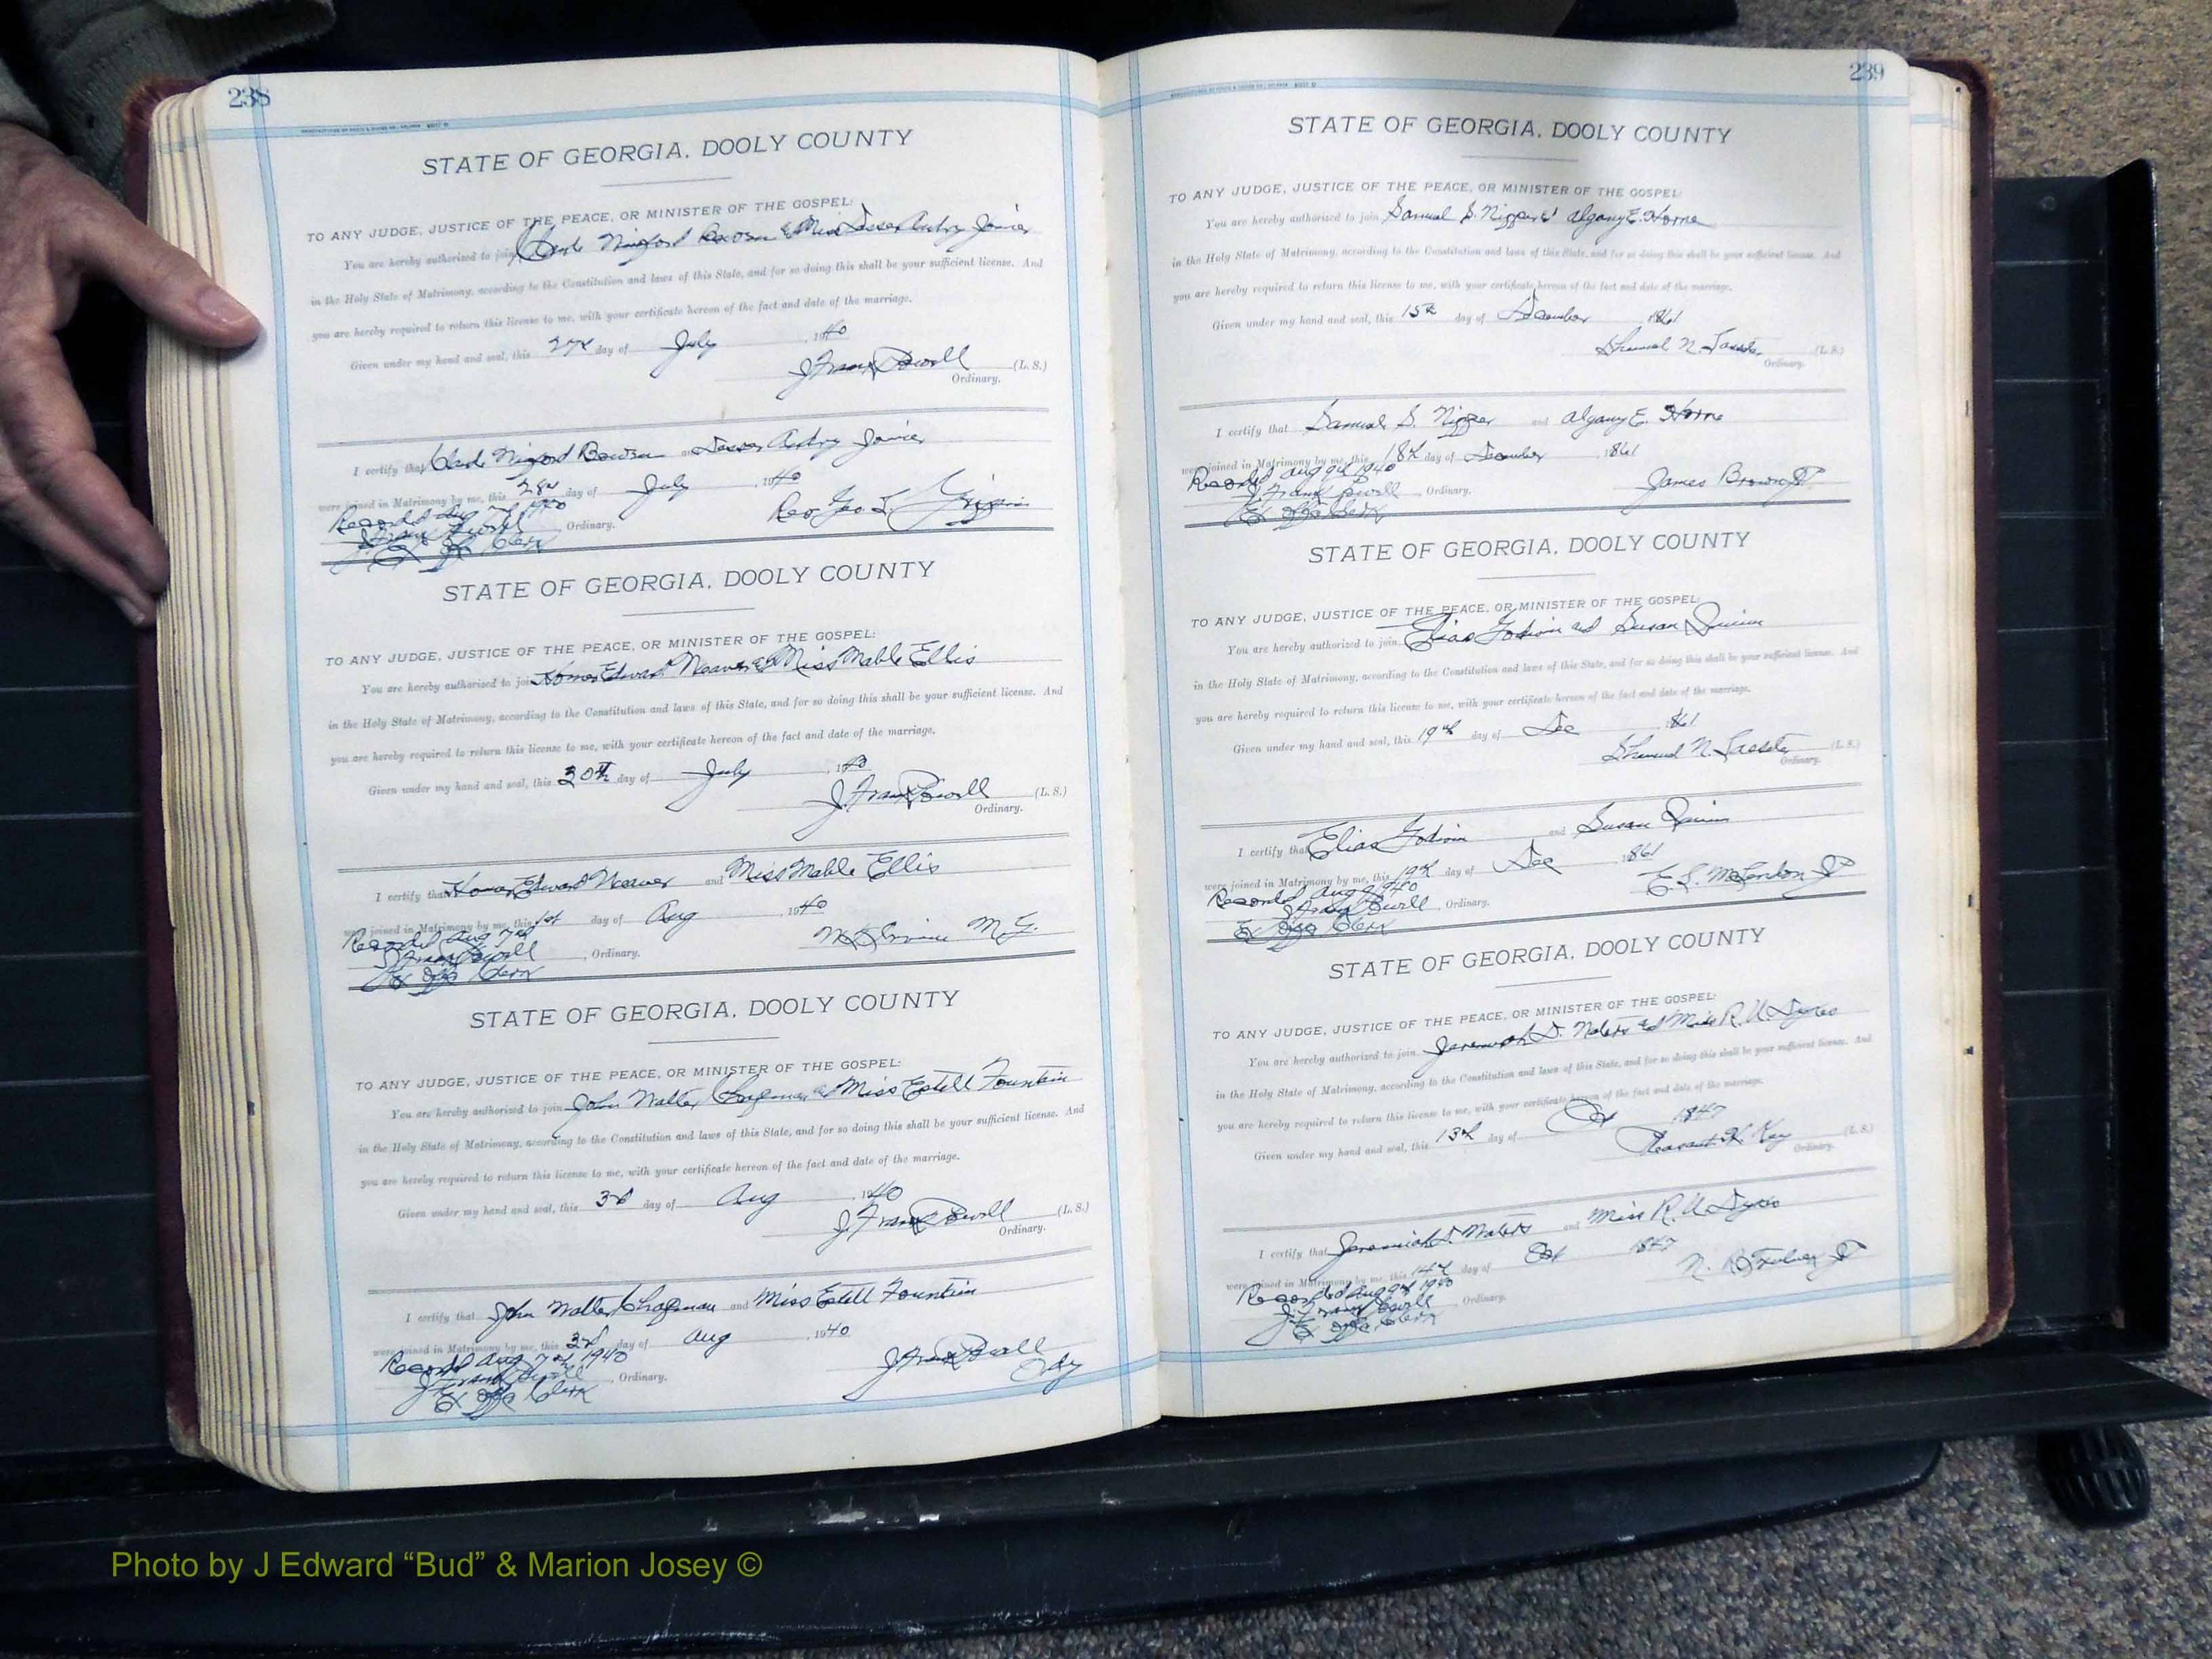 238
STATE OF GEORGIA, DOOLY COUNTY
TO ANY JUDGE, JUSTICE OF THE PEACE, OR MINISTER OF THE GOSPEL:
You are hereby authorized to join
in the Holy State of Matrimony, according to the Constitution and laws of this State, and for so doing this shall be your sufficient license. And
you are hereby required to return this license to me, with your certificate hereon of the fact and date of the marriage.
Given under my hand and seal, this 27th day of July, 1940
J Frank Powell (L. S.)
Ordinary.
I certify that and
were joined in Matrimony by me, this 28th day of July, 1940
Recorded Aug 7th 1940 Rev. Geo
J Frank Powell, Ordinary.
Ex Offo Clerk
STATE OF GEORGIA, DOOLY COUNTY
TO ANY JUDGE, JUSTICE OF THE PEACE, OR MINISTER OF THE GOSPEL:
You are hereby authorized to join Homer Edward Weaver & Miss Mable Ellis
in the Holy State of Matrimony, according to the Constitution and laws of this State, and for so doing this shall be your sufficient license. And
you are hereby required to return this license to me, with your certificate hereon of the fact and date of the marriage.
Given under my hand and seal, this 30th day of July, 1940
J. Frank Powell (L. S.)
Ordinary.
I certify that Homer Edward Weaver and Miss Mable Ellis
were joined in Matrimony by me, this 1st day of Aug, 1940
Recorded Aug 7th M. G.
J Frank Powell, Ordinary.
Ex Offo Clerk
STATE OF GEORGIA, DOOLY COUNTY
TO ANY JUDGE, JUSTICE OF THE PEACE, OR MINISTER OF THE GOSPEL:
You are hereby authorized to join John Walter Chapman & Miss Estell Fountain
in the Holy State of Matrimony, according to the Constitution and laws of this State, and for so doing this shall be your sufficient license. And
you are hereby required to return this license to me, with your certificate hereon of the fact and date of the marriage.
Given under my hand and seal, this 3rd day of Aug, 1940
J. Frank Powell (L. S.)
Ordinary.
I certify that John Walter Chapman and Miss Estell Fountain
were joined in Matrimony by me, this 3rd day of Aug, 1940
Recorded Aug 7th 1940 J Frank Powell
J Frank Powell, Ordinary. Ordy
Ex Offo Clerk
239
STATE OF GEORGIA, DOOLY COUNTY
TO ANY JUDGE, JUSTICE OF THE PEACE, OR MINISTER OF THE GOSPEL:
You are hereby authorized to join Samuel S. Nipper & Algany E. Horne
in the Holy State of Matrimony, according to the Constitution and laws of this State, and for so doing this shall be your sufficient license. And
you are hereby required to return this license to me, with your certificate hereon of the fact and date of the marriage.
Given under my hand and seal, this 15th day of December 1861
N. Lasseter (L. S.)
Ordinary.
I certify that Samuel S. Nipper and Algany E. Horne
were joined in Matrimony by me, this 18th day of December, 1861
Recorded Aug 9th 1940 James Brown JP
J Frank Powell, Ordinary.
Ex Offo Clerk
STATE OF GEORGIA, DOOLY COUNTY
TO ANY JUDGE, JUSTICE OF THE PEACE, OR MINISTER OF THE GOSPEL:
You are hereby authorized to join Elias Godwin and Susan
in the Holy State of Matrimony, according to the Constitution and laws of this State, and for so doing this shall be your sufficient license. And
you are hereby required to return this license to me, with your certificate hereon of the fact and date of the marriage.
Given under my hand and seal, this 19th day of Dec 1861
N. Lasseter (L. S.)
Ordinary.
I certify that Elias Godwin and Susan
were joined in Matrimony by me, this 19th day of Dec 1861
Recorded Aug 9 1940 E. S. McLendon JP
J Frank Powell, Ordinary.
Ex Offo Clerk
STATE OF GEORGIA, DOOLY COUNTY
TO ANY JUDGE, JUSTICE OF THE PEACE, OR MINISTER OF THE GOSPEL:
You are hereby authorized to join Jeremiah D. Waters and Miss R. U. Sykes
in the Holy State of Matrimony, according to the Constitution and laws of this State, and for so doing this shall be your sufficient license. And
you are hereby required to return this license to me, with your certificate hereon of the fact and date of the marriage.
Given under my hand and seal, this 13th day of Oct 1847
Pleasant H. Key (L. S.)
Ordinary.
I certify that Jeremiah D. Waters and Miss R. U Sykes
were joined in Matrimony by me, this 14th day of Oct 1847
Recorded Aug 9th 1940 JP
J. Frank Powell, Ordinary.
Ex Offo Clerk
Photo by J Edward “Bud” & Marion Josey ©